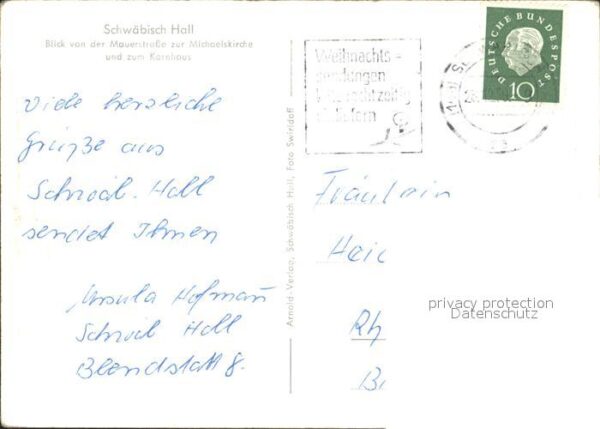 Schwäbisch Hall
Blick von der Mauerstraße zur Michaelskirche
und zum Kornhaus
Viele herzliche
Grüße aus
Schwäb. Hall
sendet Ihnen
Ursula Hofmann
Schwäb Hall
8.
Arnold-Verlag, Schwäbisch Hall, Foto
Weihnachts-
sendungen
rechtzeitig
einliefern
DEUTSCHE BUNDESPOST
10
Fräulein
Hei
Rh
B
privacy protection
Datenschutz